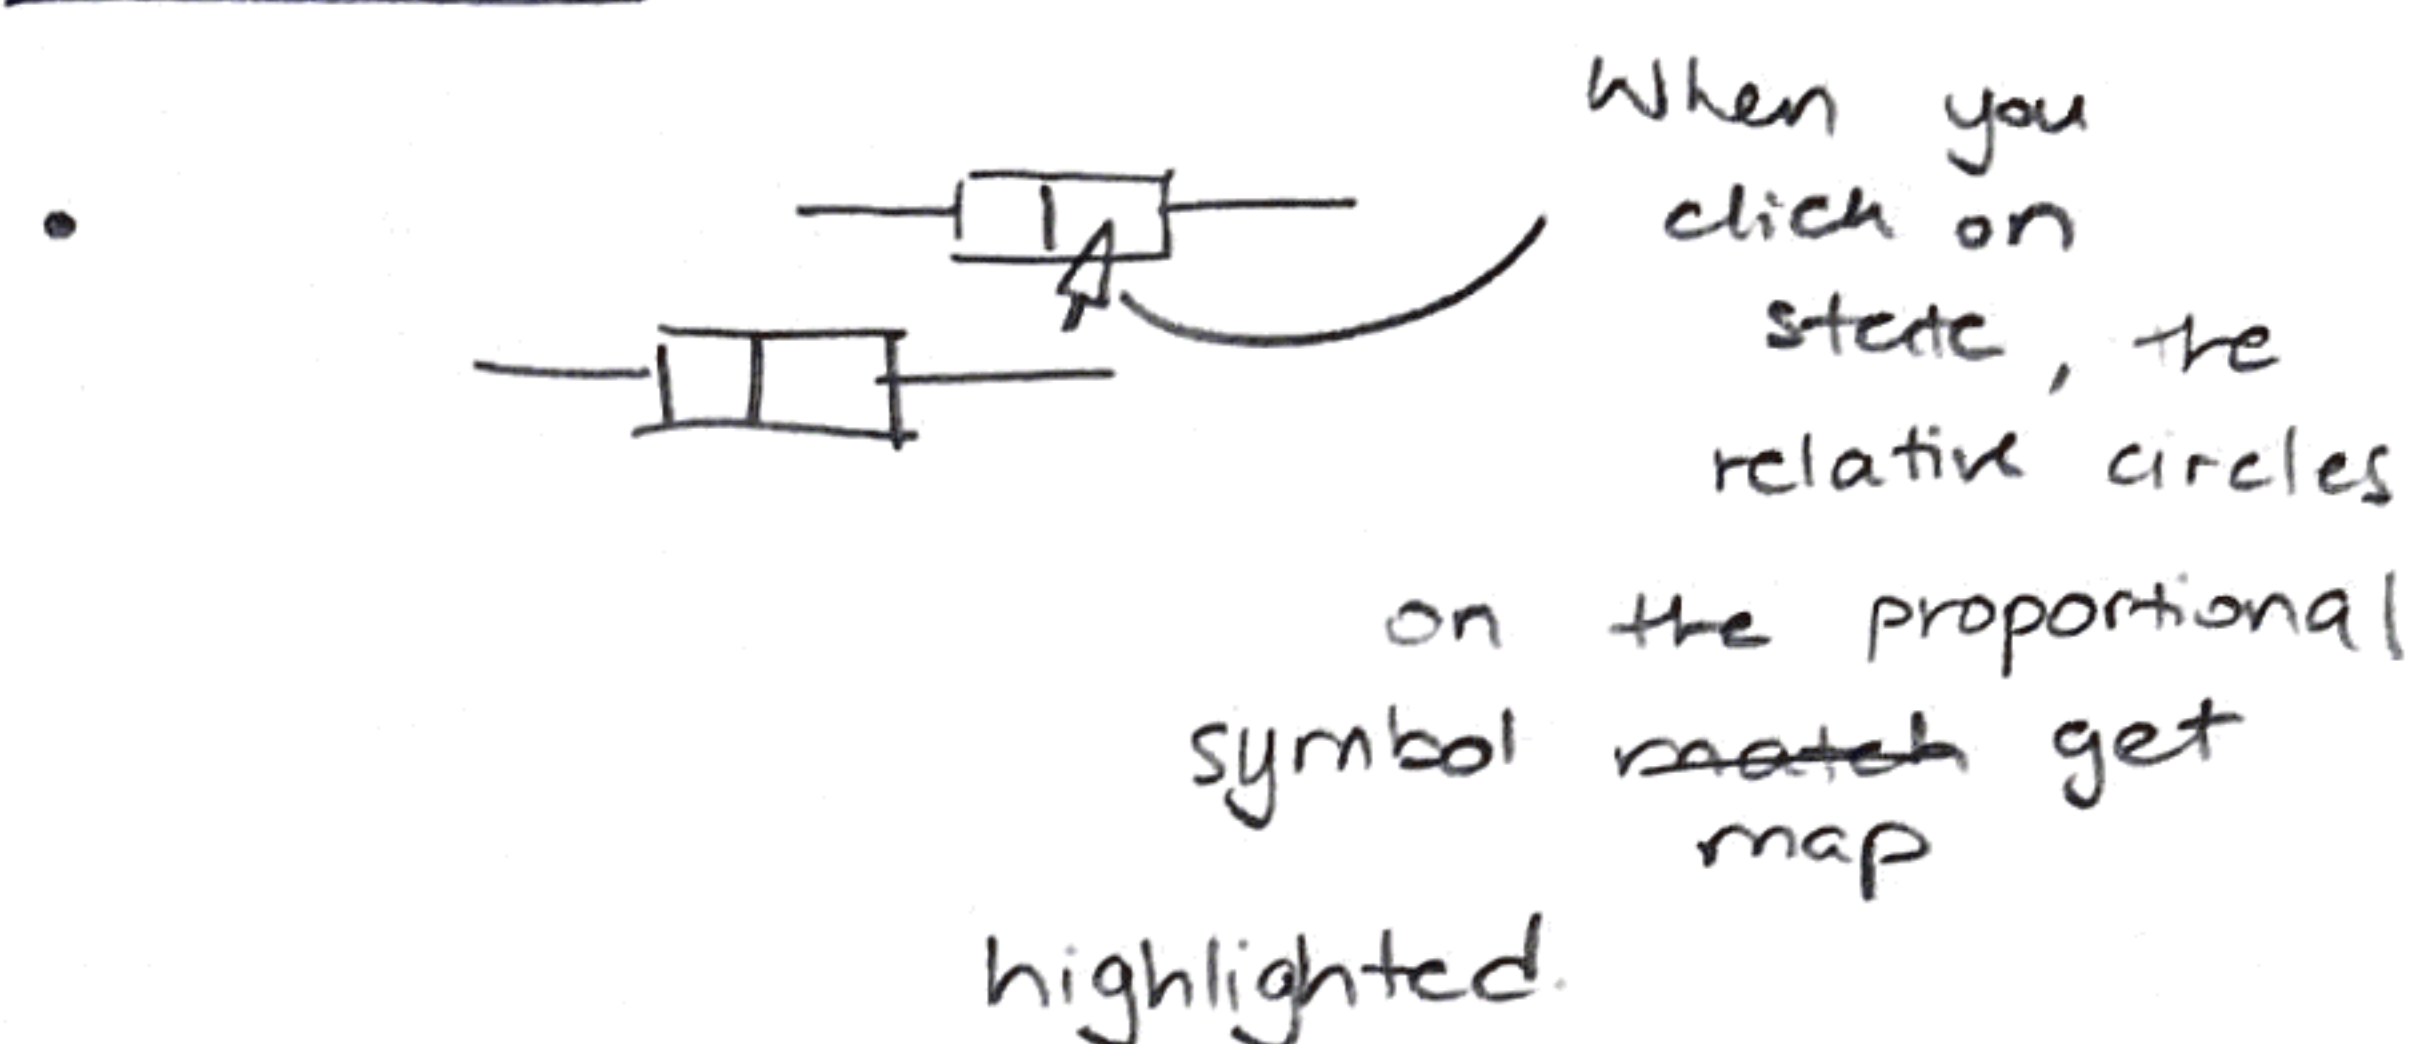 When you
click on
state, the
relative circles
on the proportional
symbol match get
map
highlighted.